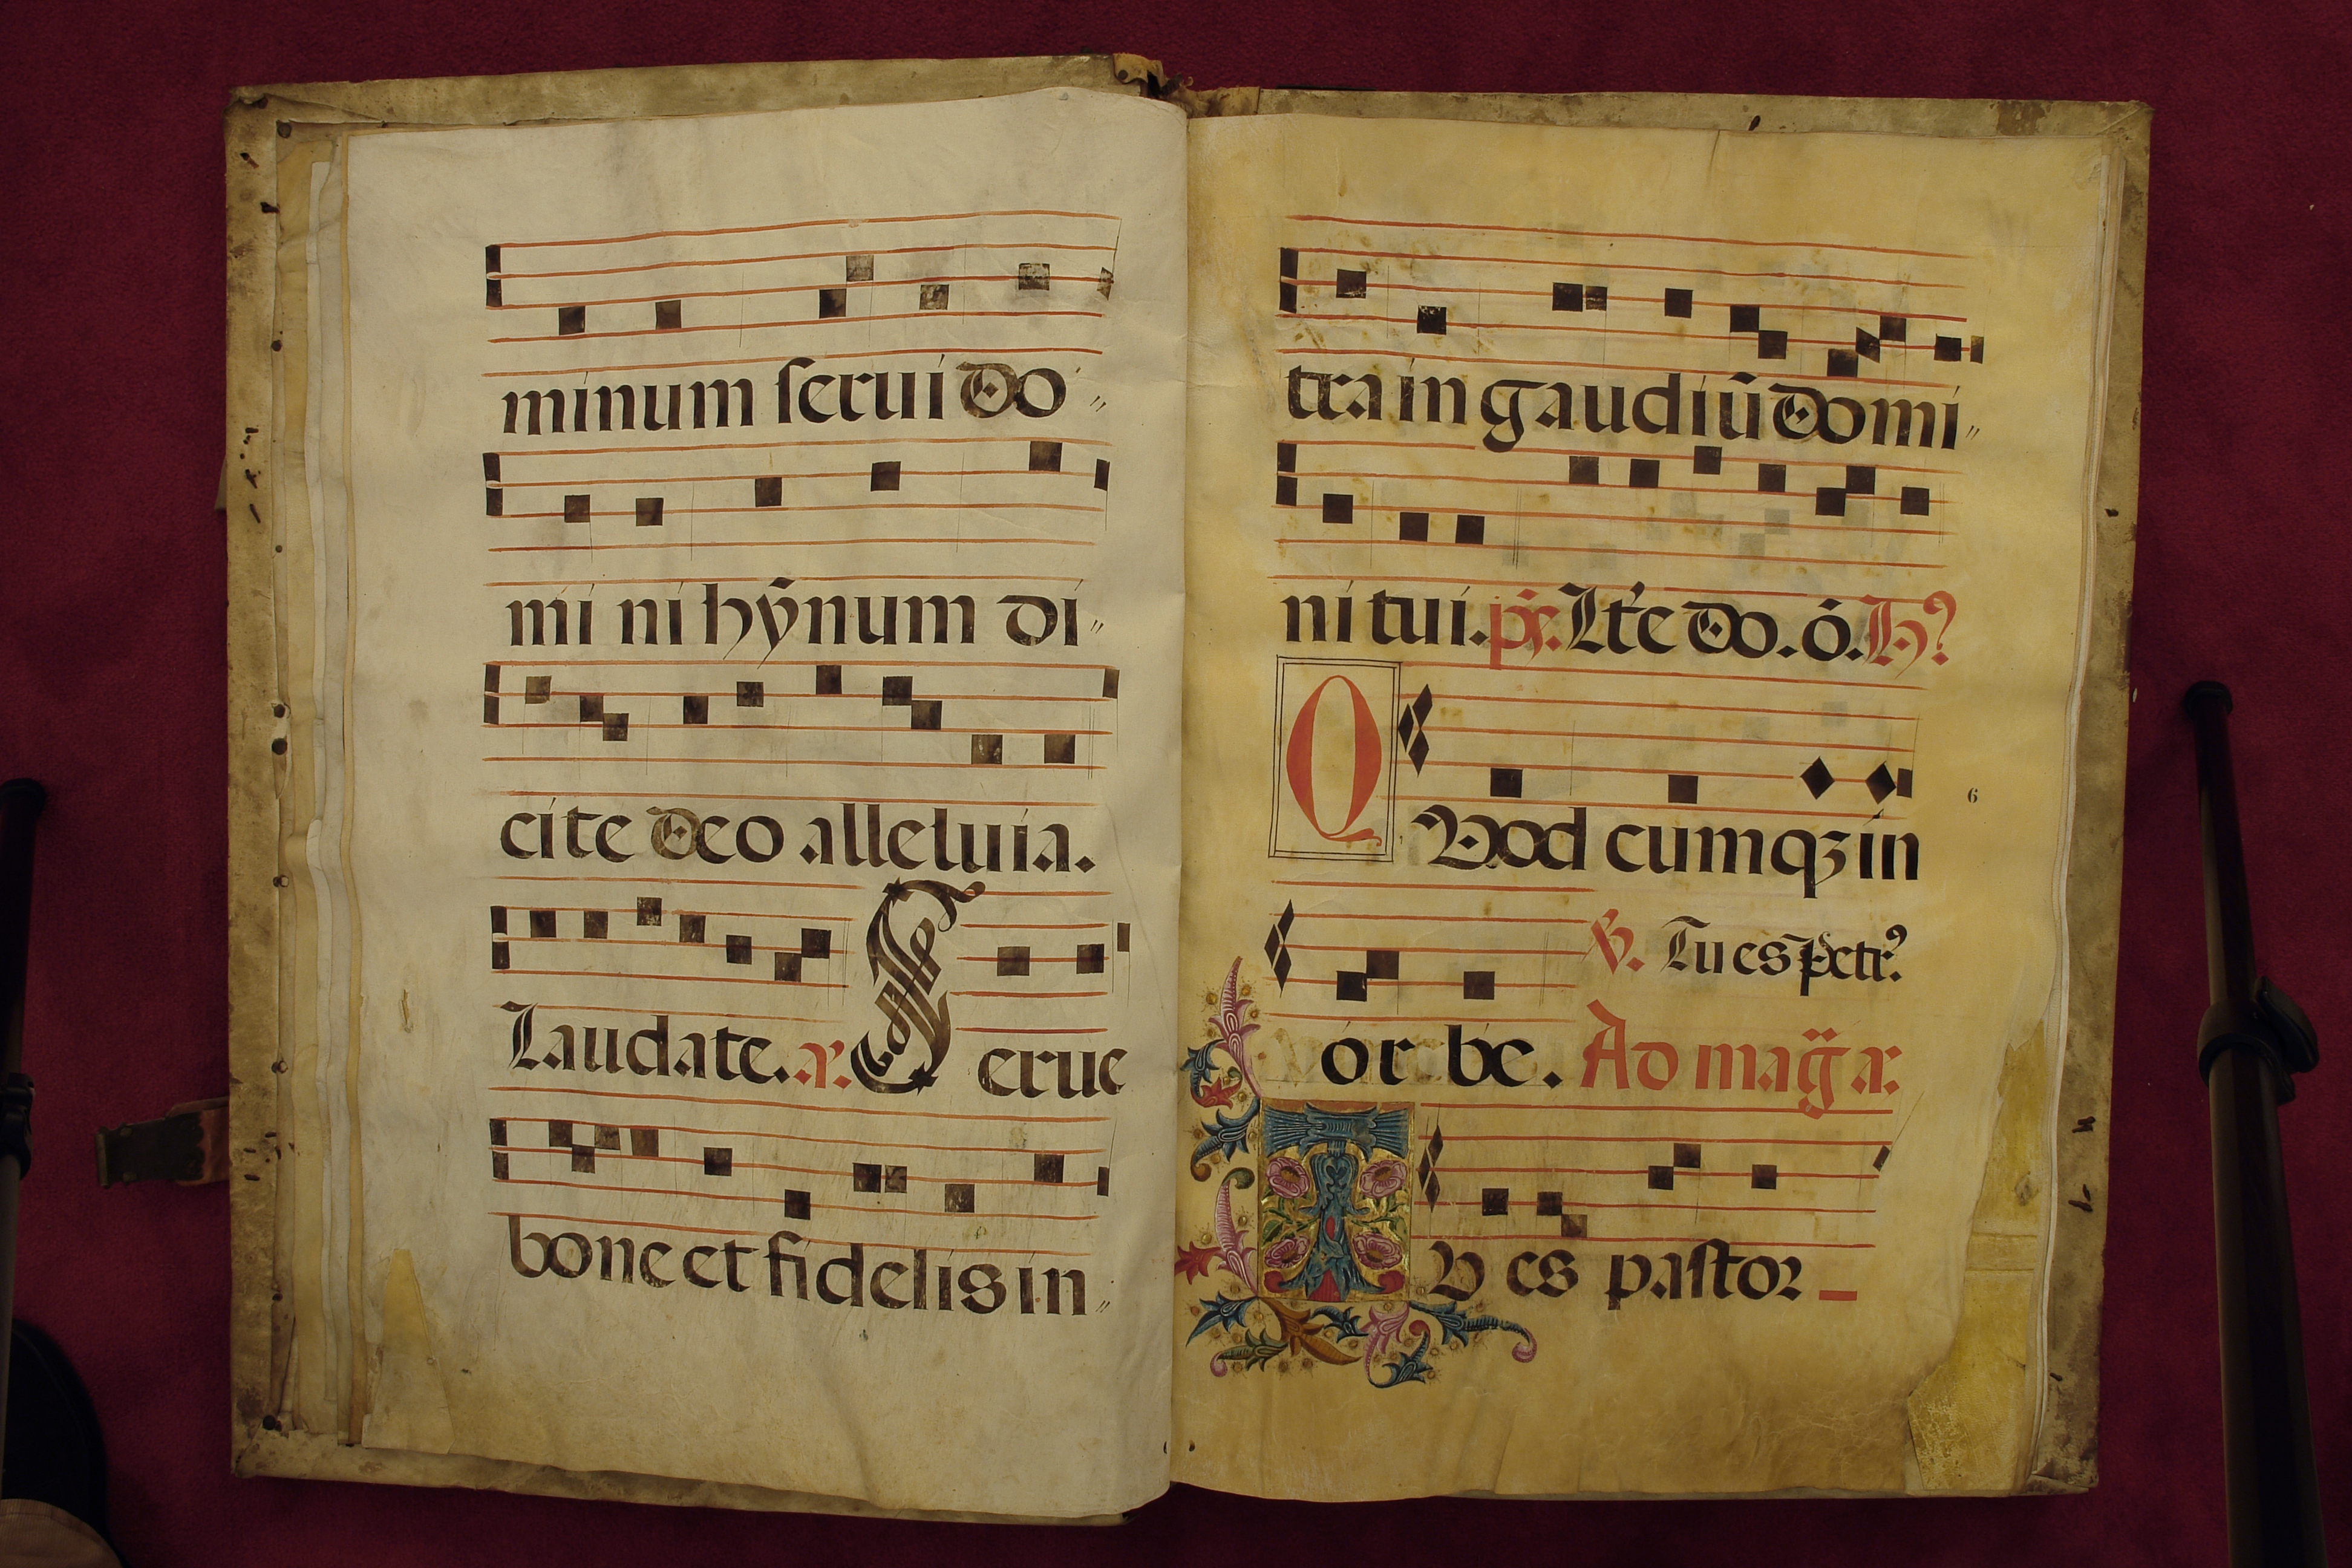 minum serui do〃
mi ni hȳnum di〃
cite deo alleluia.
Laudate. a. Serue
bone et fidelis in〃
tra in gaudiū domi〃
ni tui. ps. Lt'e do. ó. H?
QVod cumqꝫ in
℟. Tu es Petr⁹.
or be. Ad mag̃ a.
TV es pastor
6